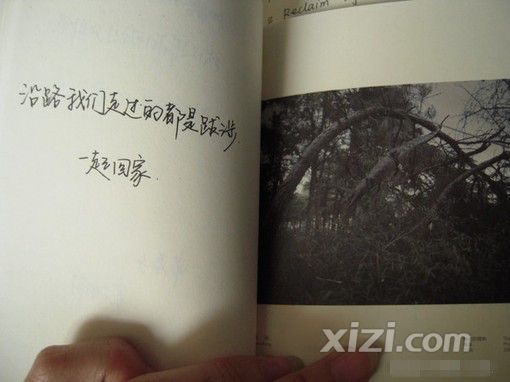 沿路我们走过的都是跋涉.
一起回家.
Reclaim
xizi.com